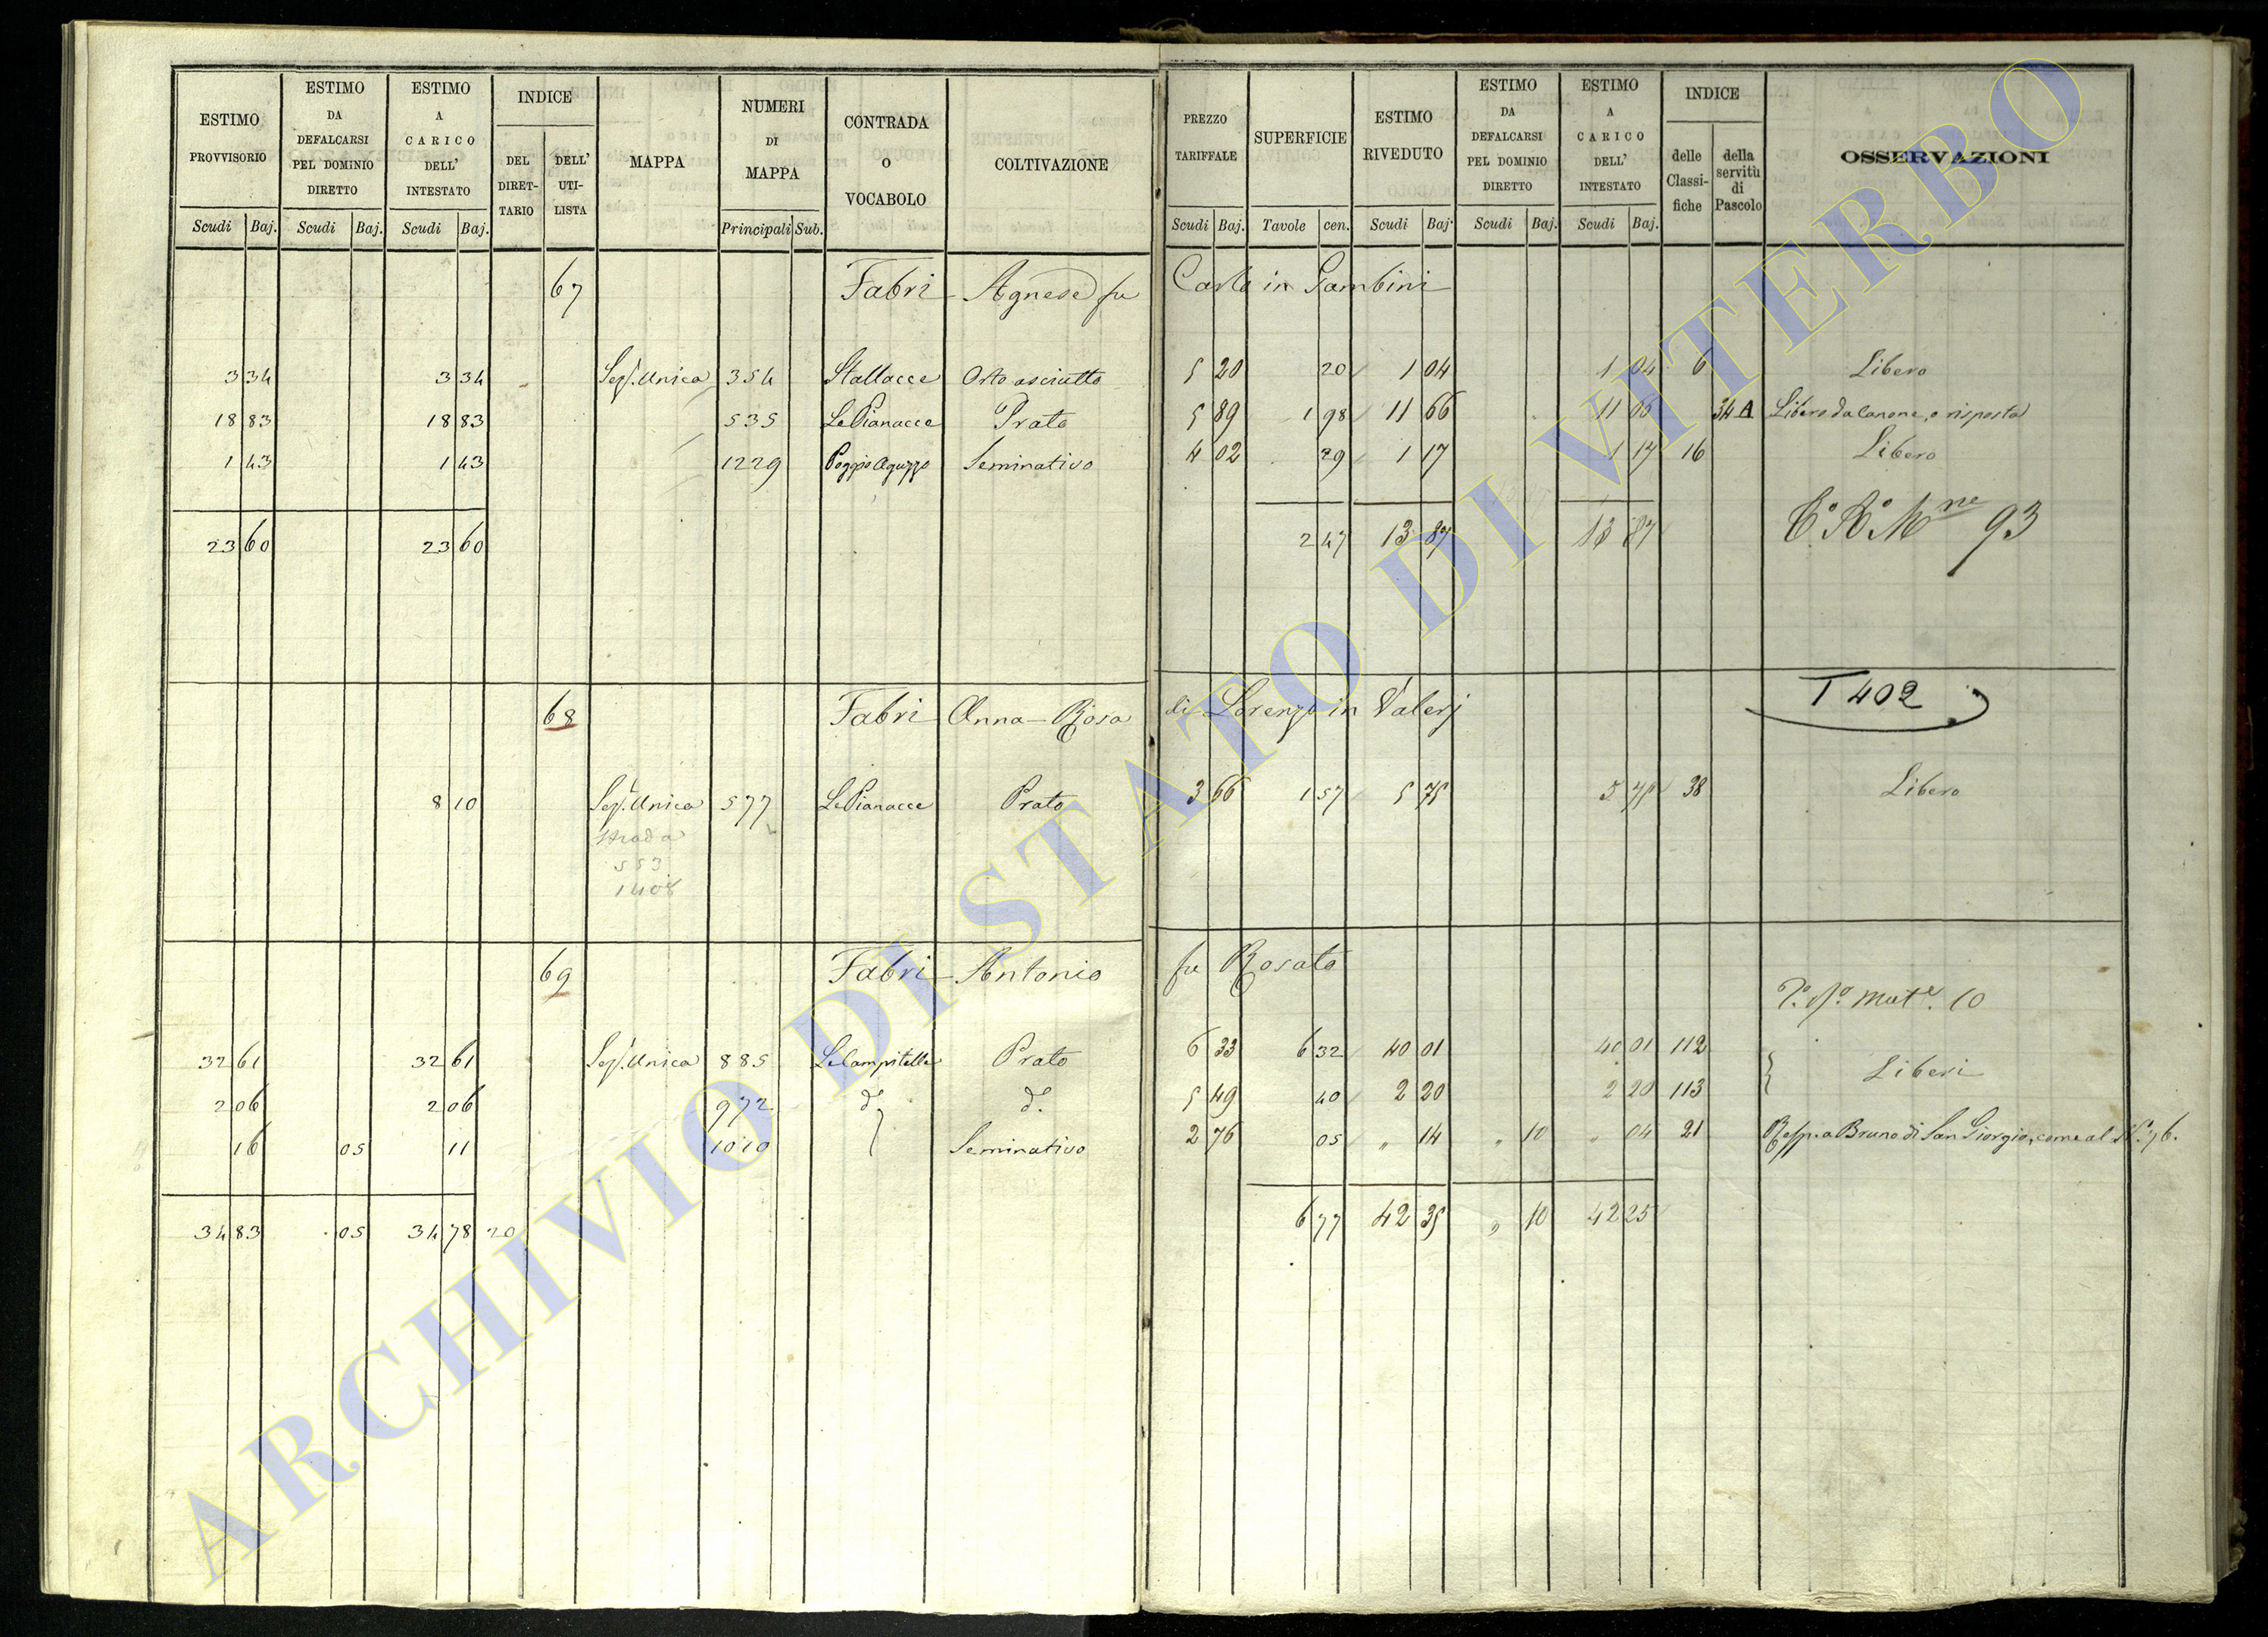 ESTIMO PROVVISORIO | ESTIMO DA DEFALCARSI PEL DOMINIO DIRETTO | ESTIMO A CARICO DELL' INTESTATO | INDICE | MAPPA | NUMERI DI MAPPA | CONTRADA O VOCABOLO | COLTIVAZIONE | PREZZO TARIFFALE | SUPERFICIE | ESTIMO RIVEDUTO | ESTIMO DA DEFALCARSI PEL DOMINIO DIRETTO | ESTIMO A CARICO DELL' INTESTATO | INDICE | OSSERVAZIONI
DEL DIRET-TARIO | DELL' UTI-LISTA | delle Classi-fiche | della servitù di Pascolo
Scudi | Baj. | Scudi | Baj. | Scudi | Baj. | Principali | Sub. | Scudi | Baj. | Tavole | cen. | Scudi | Baj. | Scudi | Baj. | Scudi | Baj.
67 Fabri Agnese fu Carlo in Gambini
3 34 | 3 34 | Sez. Unica | 354 | Stallacce | Orto asciutto | 5 20 | 20 | 1 04 | 1 04 | 6 | Libero
18 83 | 18 83 | 535 | Le Pianacce | Prato | 5 89 | 1 98 | 11 66 | 11 66 | 34 A | Libero da canone, o risposta
1 43 | 1 43 | 1229 | Poggio Aguzzo | Seminativo | 4 02 | 29 | 1 17 | 1 17 | 16 | Libero
23 60 | 23 60 | 2 47 | 13 87 | 13 87 | 93
T 402
68 Fabri Anna Rosa di Lorenzo in Valerj
8 10 | Sez. Unica | 577 | Le Pianacce | Prato | 3 66 | 1 57 | 5 75 | 5 75 | 38 | Libero
strada
553
1408
69 Fabri Antonio fu Rosato
Mut. 10
32 61 | 32 61 | Sez. Unica | 885 | Le Campitelle | Prato | 6 33 | 6 32 | 40 01 | 40 01 | 112 | Liberi
2 06 | 2 06 | 972 | d.e | d.o | 5 49 | 40 | 2 20 | 2 20 | 113
16 | 05 | 11 | 1010 | Seminativo | 2 76 | 05 | " 14 | " 10 | " 04 | 21 | Resp. a Bruno di San Giorgio, come al N.° 76.
34 83 | 05 | 34 78 | 20 | 6 77 | 42 35 | " 10 | 42 25
ARCHIVIO DI STATO DI VITERBO